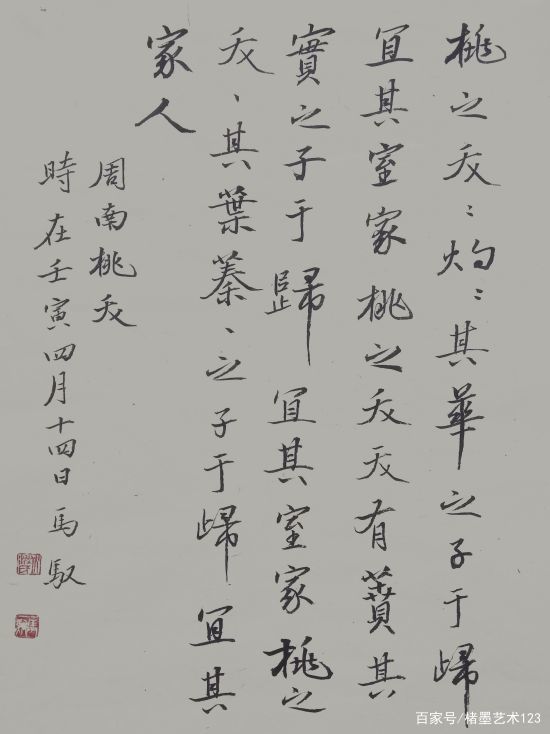 桃之夭〻灼〻其華之子于歸
宜其室家桃之夭夭有蕡其
實之子于歸宜其室家桃之
夭〻其葉蓁〻之子于歸宜其
家人
周南桃夭
時在壬寅四月十四日馬馭
百家号/楮墨艺术123